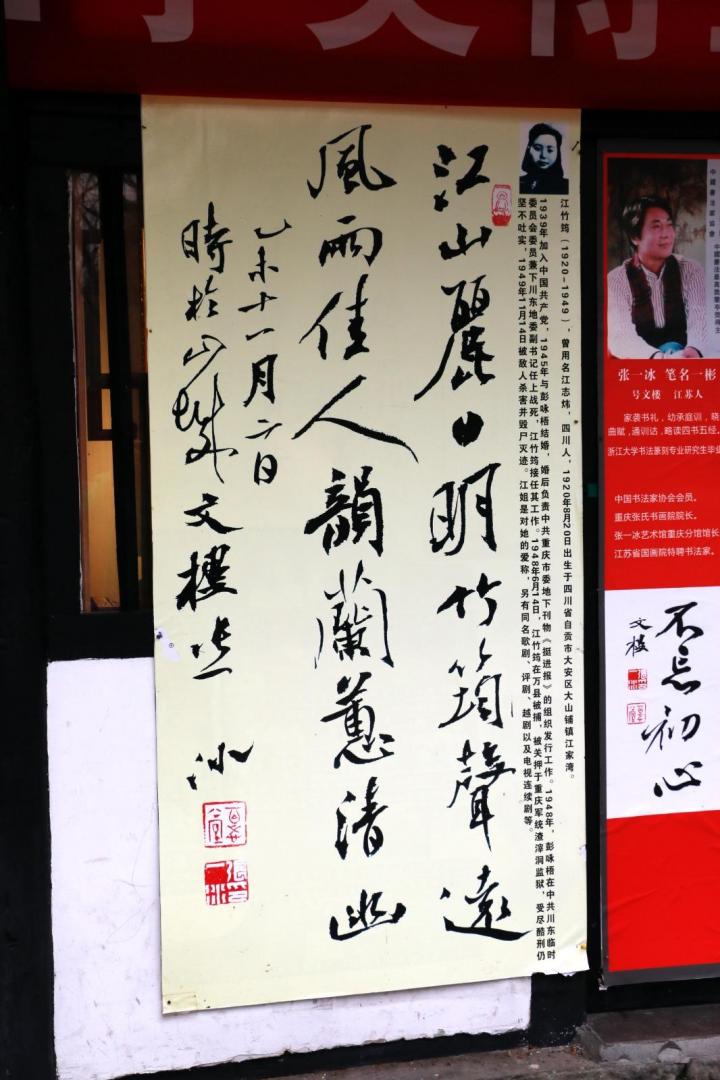 江竹筠（1920-1949），曾用名江志炜，四川人，1920年8月20日出生于四川省自贡市大安区大山铺镇江家湾。
1939年加入中国共产党，1945年与彭咏梧结婚，婚后负责中共重庆市委地下刊物《挺进报》的组织发行工作。1948年，彭咏梧在中共川东临时
委员会委员兼下川东地委副书记任上战死，江竹筠接任其工作。1948年6月14日，江竹筠在万县被捕，被关押于重庆军统渣滓洞监狱，受尽酷刑仍
坚不吐实，1949年11月14日被敌人杀害并毁尸灭迹。江姐是对她的爱称，另有同名歌剧、评剧、越剧以及电视连续剧等。
江山麗日明竹筠聲遠
風雨佳人韻蘭蕙清幽
乙未十一月六日
時於山城文樓張一冰
张一冰 笔名一彬
号文楼 江苏人
家袭书礼，幼承庭训，晓
曲赋，通训达，略读四书五经。
浙江大学书法篆刻专业研究生毕业
中国书法家协会会员。
重庆张氏书画院院长。
张一冰艺术馆重庆分馆馆长
江苏省国画院特聘书法家。
不忘初心
文樓